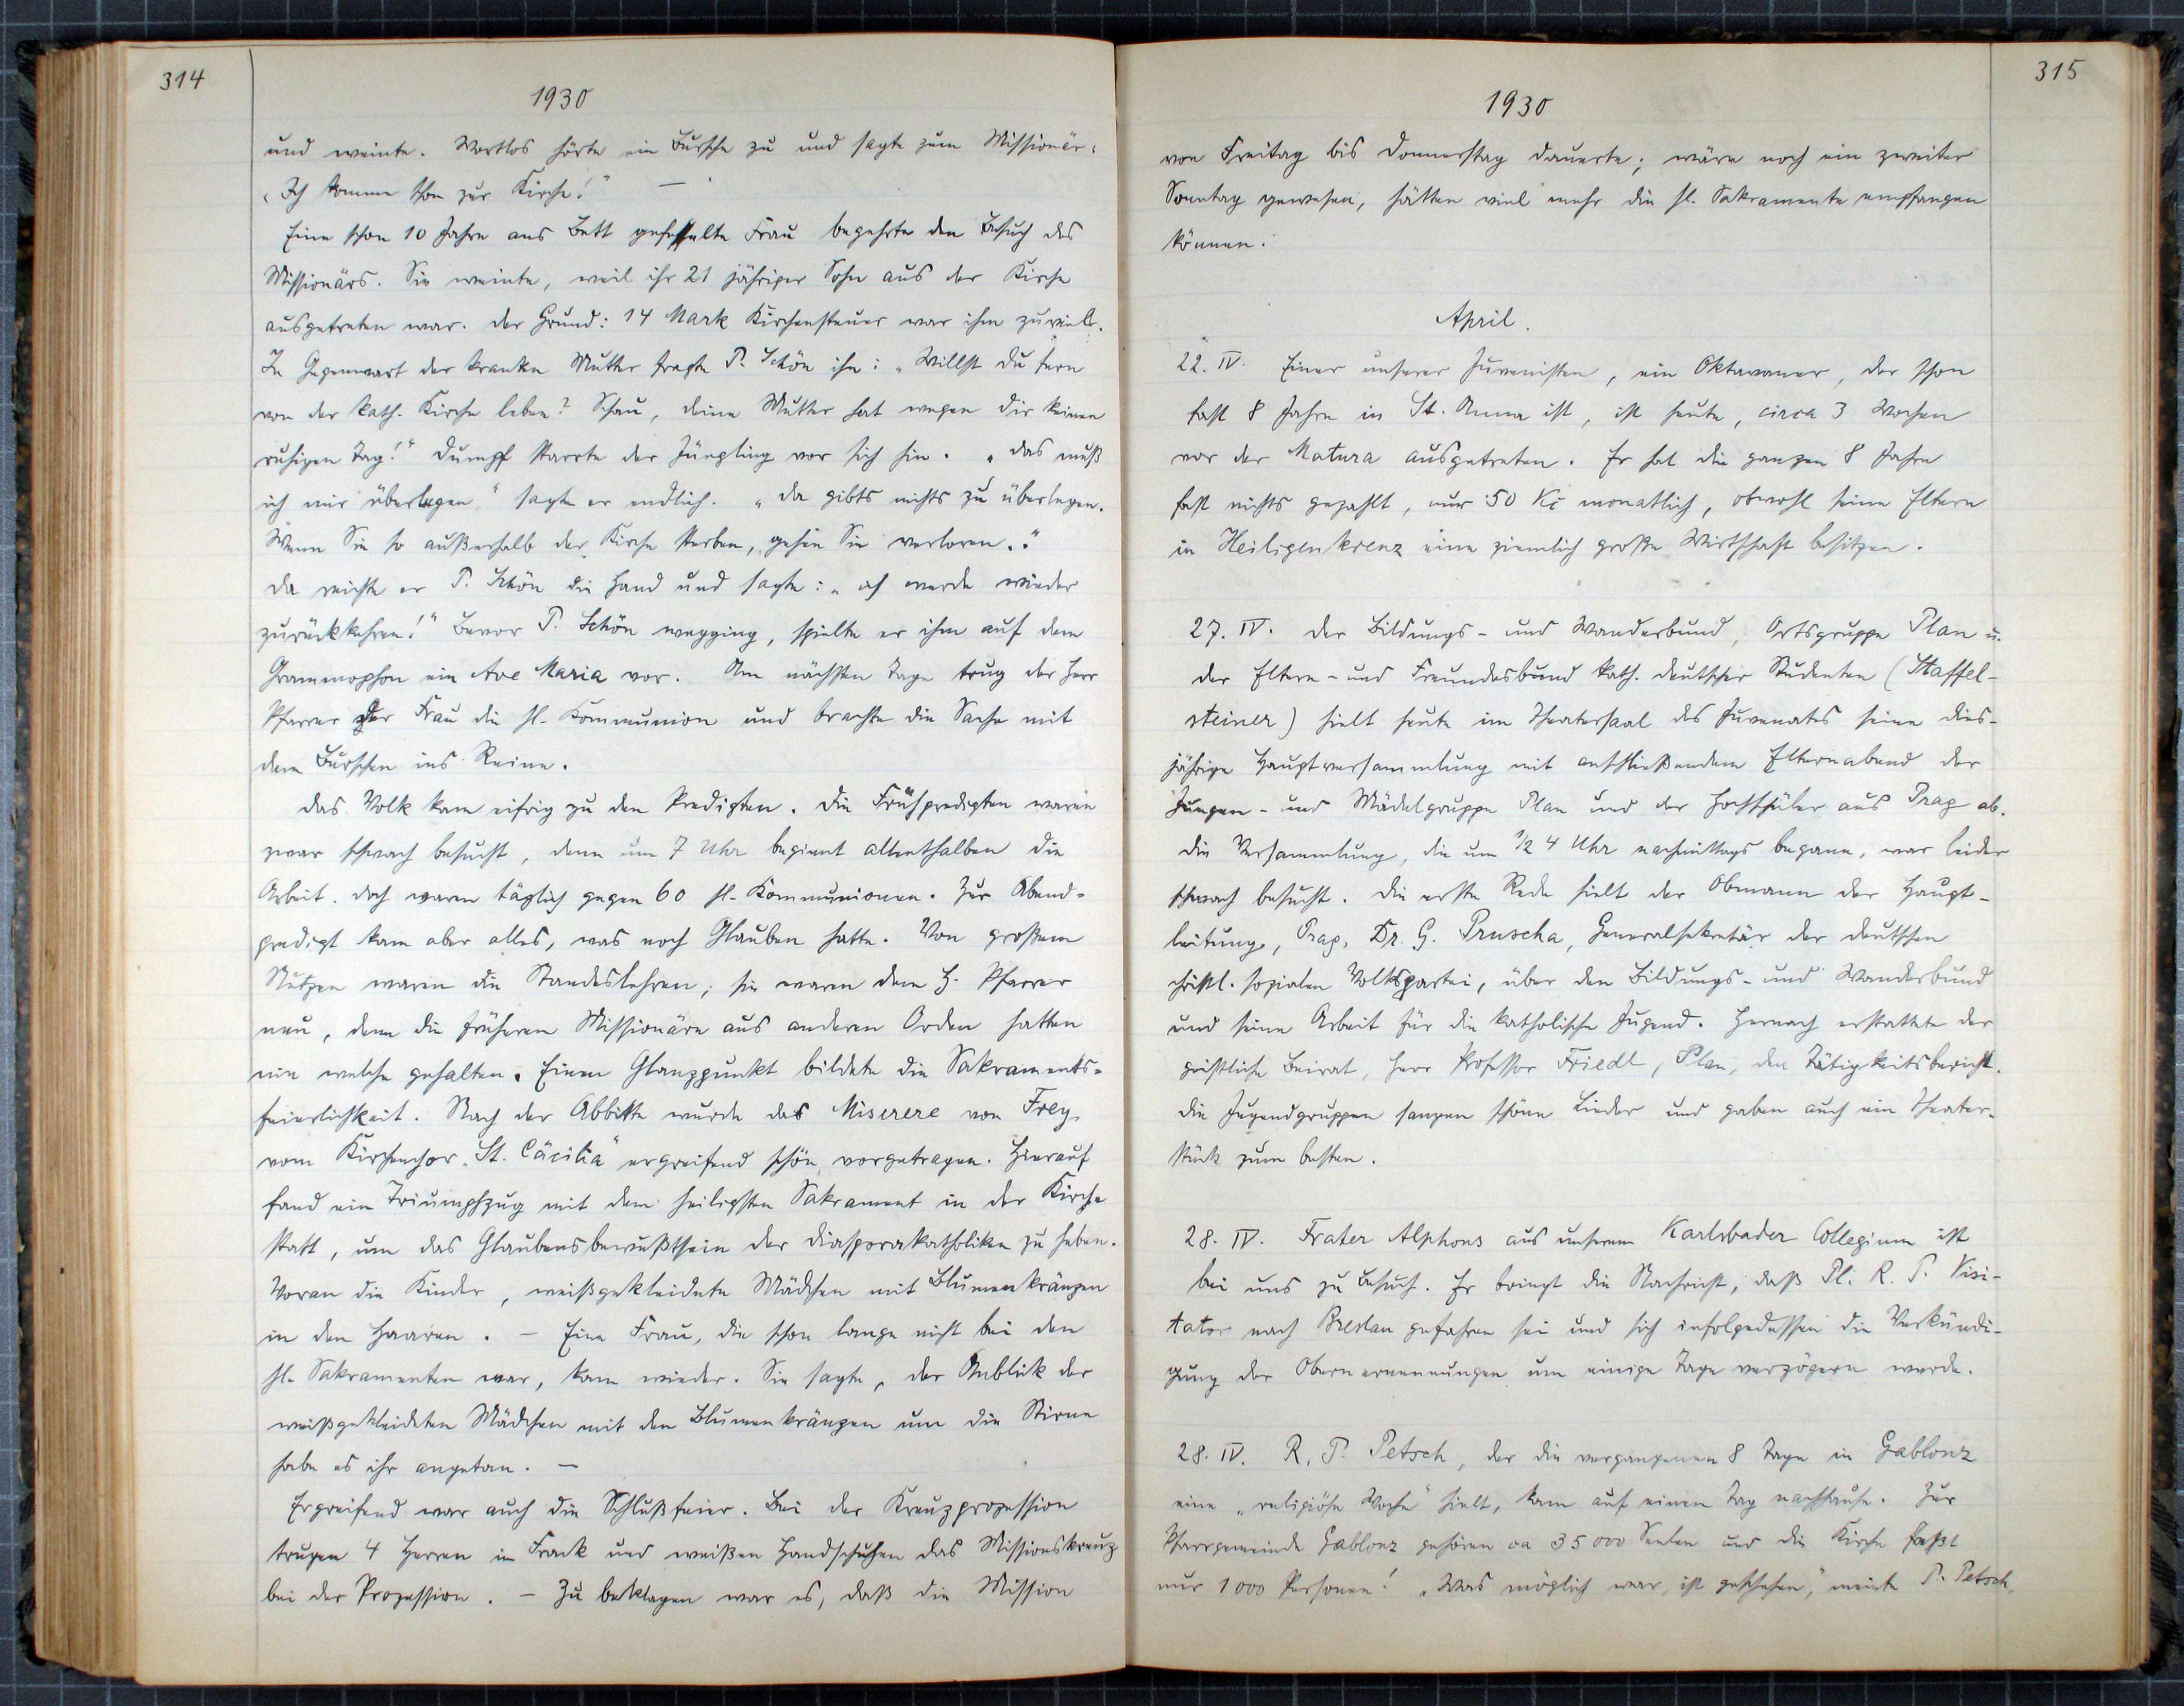 314
1930
und weinte. Wortlos hörte ein Bursche zu und sagte zum Missionär:
„Ich komme schon zur Kirche!" —
Eine schon 10 Jahre ans Bett gefesselte Frau begehrte den Besuch des
Missionärs. Sie weinte, weil ihr 21 jähriger Sohn aus der Kirche
ausgetreten war. Der Grund: 14 Mark Kirchensteuer war ihm zuviel.
In Gegenwart der kranken Mutter fragte P. Schön ihn: „Willst du fern
von der kath. Kirche leben? Schau, deine Mutter hat wegen dir keinen
ruhigen Tag!" Dumpf starrte der Jüngling vor sich hin. „Das muß
ich mir überlegen" sagte er endlich. „Da gibts nichts zu überlegen.
Wenn Sie so außerhalb der Kirche sterben, gehen Sie verloren."
Da reichte er P. Schön die Hand und sagte: „ich werde wieder
zurückkehren!" Bevor P. Schön wegging, spielte er ihm auf dem
Grammophon ein Ave Maria vor. Am nächsten Tage trug der Herr
Pfarrer der Frau die hl. Kommunion und brachte die Sache mit
dem Burschen ins Reine.
Das Volk kam eifrig zu den Predigten. Die Frühpredigten waren
zwar schwach besucht, denn um 7 Uhr beginnt allenthalben die
Arbeit. Doch waren täglich gegen 60 hl. Kommunionen. Zur Abend-
predigt kam aber alles, was noch Glauben hatte. Von großem
Nutzen waren die Standeslehren; sie waren dem H. Pfarrer
neu, denn die früheren Missionäre aus anderen Orden hatten
nie welche gehalten. Einen Glanzpunkt bildete die Sakraments-
feierlichkeit. Nach der Abbitte wurde das Miserere von Frey
vom Kirchenchor „St. Cäcilia" ergreifend schön vorgetragen. Hierauf
fand ein Triumphzug mit dem heiligsten Sakrament in der Kirche
statt, um das Glaubensbewußtsein der Diasporakatholiken zu heben.
Voran die Kinder, weißgekleidete Mädchen mit Blumenkränzen
in den Haaren. — Eine Frau, die schon lange nicht bei den
hl. Sakramenten war, kam wieder. Sie sagte, der Anblick der
weißgekleideten Mädchen mit den Blumenkränzen um die Stirne
habe es ihr angetan. —
Ergreifend war auch die Schlußfeier. Bei der Kreuzprozession
trugen 4 Herren in Frack und weißen Handschuhen das Missionskreuz
bei der Prozession. — Zu beklagen war es, daß die Mission
315
1930
von Freitag bis Donnerstag dauerte; wäre noch ein zweiter
Sonntag gewesen, hätten viel mehr die hl. Sakramente empfangen
können.
April.
22. IV. Einer unserer Juvenisten, ein Oktavaner, der schon
fast 8 Jahre in St. Anna ist, ist heute, circa 3 Wochen
vor der Matura ausgetreten. Er hat die ganzen 8 Jahre
fast nichts gezahlt, nur 50 Kč monatlich, obwohl seine Eltern
in Heiligenkreuz eine ziemlich große Wirtschaft besitzen.
27. IV. Der Bildungs- und Wanderbund, Ortsgruppe Plan u.
der Eltern- und Freundesbund kath. deutscher Studenten (Staffel-
steiner) hielt heute im Theatersaal des Juvenates seine dies-
jährige Hauptversammlung mit anschließendem Elternabend der
Jungen- und Mädelgruppe Plan und der Hochschüler aus Prag ab.
Die Versammlung, die um ½ 4 Uhr nachmittags begann, war leider
schwach besucht. Die erste Rede hielt der Obmann der Haupt-
leitung, Prag, Dr. G. Pruscha, Generalsekretär der deutschen
christl. sozialen Volkspartei, über den Bildungs- und Wanderbund
und seine Arbeit für die katholische Jugend. Hernach erstattete der
geistliche Beirat, Herr Professor Friedl, Plan, den Tätigkeitsbericht.
Die Jugendgruppen sangen schöne Lieder und gaben auch ein Theater-
stück zum besten.
28. IV. Frater Alphons aus unserem Karlsbader Collegium ist
bei uns zu Besuch. Er bringt die Nachricht, daß Pl. R. P. Visi-
tator nach Breslau gefahren sei und sich infolgedessen die Verkündi-
gung der Obernernennungen um einige Tage verzögern werde.
28. IV. R. P. Petsch, der die vergangenen 8 Tage in Gablonz
eine „religiöse Woche" hielt, kam auf einen Tag nachhause. Zur
Pfarrgemeinde Gablonz gehören ca 35000 Seelen und die Kirche faßt
nur 1000 Personen! „Was möglich war, ist geschehen," meinte P. Petsch,